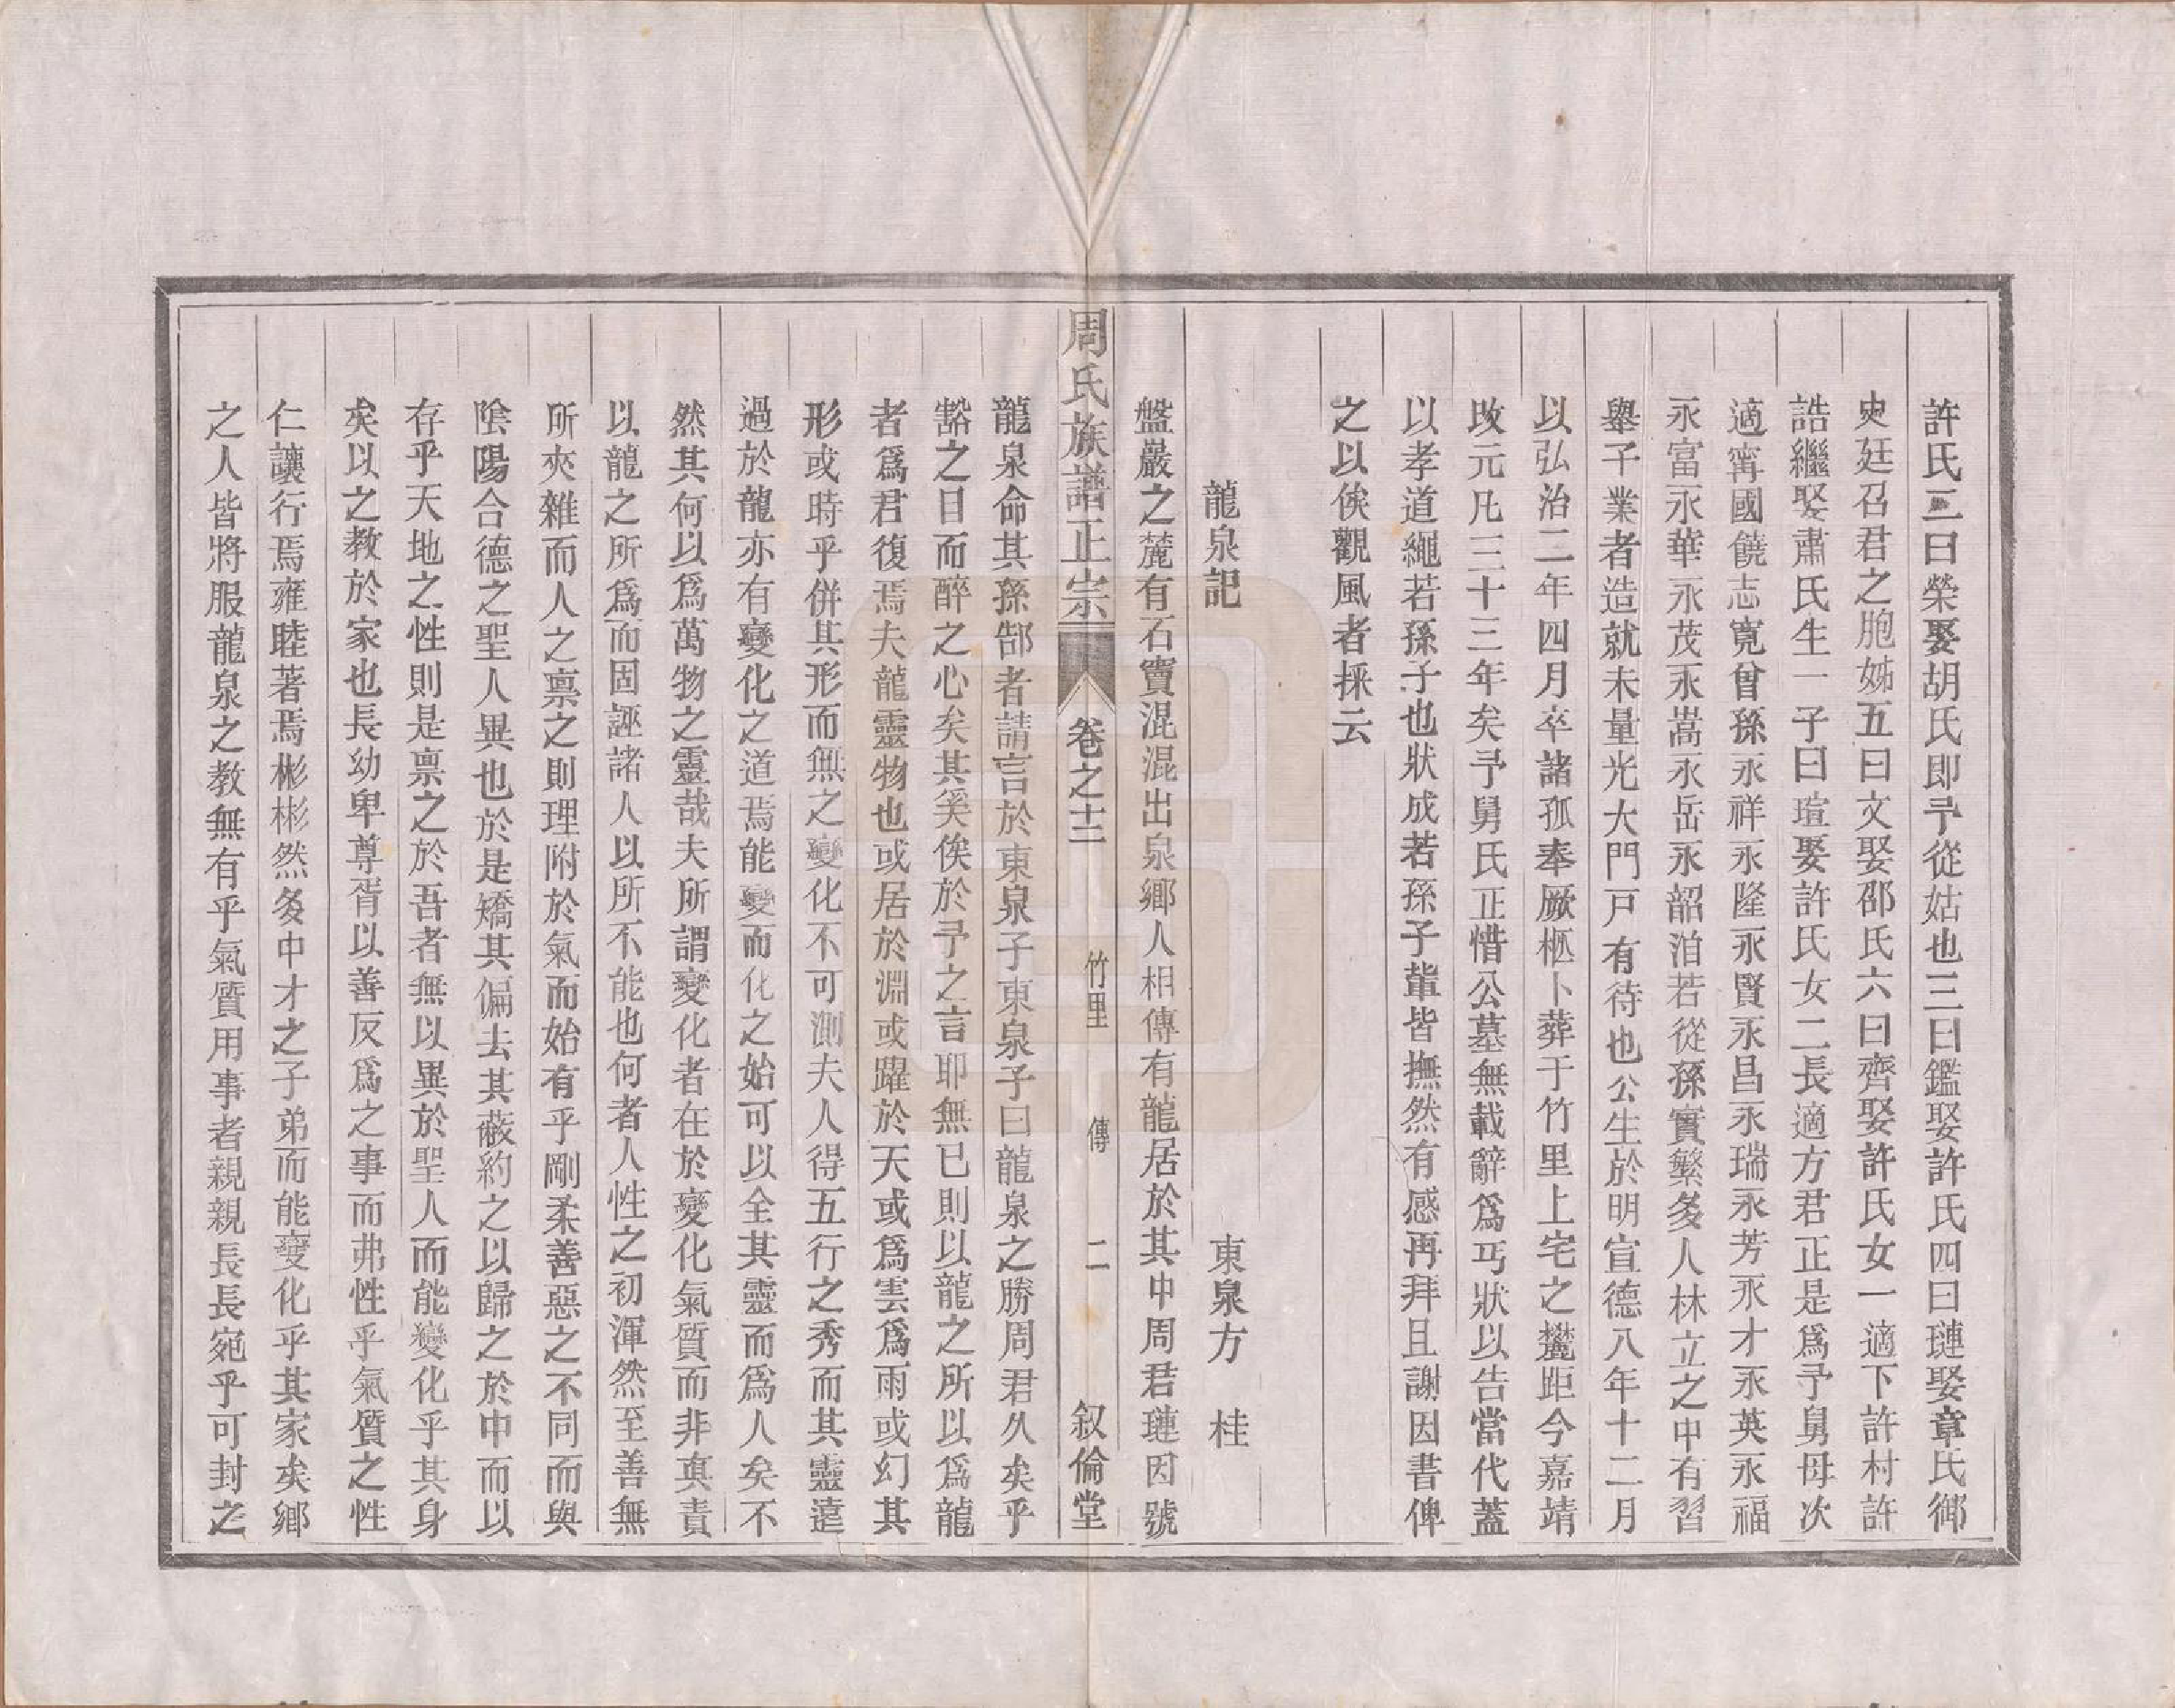 許氏二曰榮娶胡氏即予從姑也三曰鑑娶許氏四曰璉娶章氏御
史廷召君之胞姊五曰文娶邵氏六曰齊娶許氏女一適下許村許
誥繼娶肅氏生一子曰瑄娶許氏女二長適方君正是爲予舅母次
適甯國饒志寛曾孫永祥永隆永賢永昌永瑞永芳永才永英永福
永富永華永茂永嵩永岳永韶洎若從孫實繁多人林立之中有習
舉子業者造就未量光大門戸有待也公生於明宣德八年十二月
以弘治二年四月卒諸孤奉厥柩卜葬于竹里上宅之麓距今嘉靖
改元凡三十三年矣予舅氏正惜公墓無載辭爲丐狀以告當代蓋
以孝道繩若孫子也狀成若孫子輩皆撫然有感再拜且謝因書俾
之以俟觀風者採云
龍泉記 東泉方 桂
盤巖之麓有石竇混混出泉鄉人相傳有龍居於其中周君璉因號
周氏族譜正宗 卷之十二 竹里 傳 二 叙倫堂
龍泉命其孫郜者請言於東泉子東泉子曰龍泉之勝周君久矣乎
豁之目而醉之心矣其奚俟於予之言耶無已則以龍之所以爲龍
者爲君復焉夫龍靈物也或居於淵或躍於天或爲雲爲雨或幻其
形或時乎併其形而無之變化不可測夫人得五行之秀而其靈遠
過於龍亦有變化之道焉能變而化之始可以全其靈而爲人矣不
然其何以爲萬物之靈哉夫所謂變化者在於變化氣質而非眞責
以龍之所爲而固誣諸人以所不能也何者人性之初渾然至善無
所夾雜而人之禀之則理附於氣而始有乎剛柔善惡之不同而與
陰陽合德之聖人異也於是矯其偏去其蔽約之以歸之於中而以
存乎天地之性則是禀之於吾者無以異於聖人而能變化乎其身
矣以之教於家也長幼卑尊胥以善反爲之事而弗性乎氣質之性
仁讓行焉雍睦著焉彬彬然多中才之子弟而能變化乎其家矣鄉
之人皆將服龍泉之教無有乎氣質用事者親親長長宛乎可封之